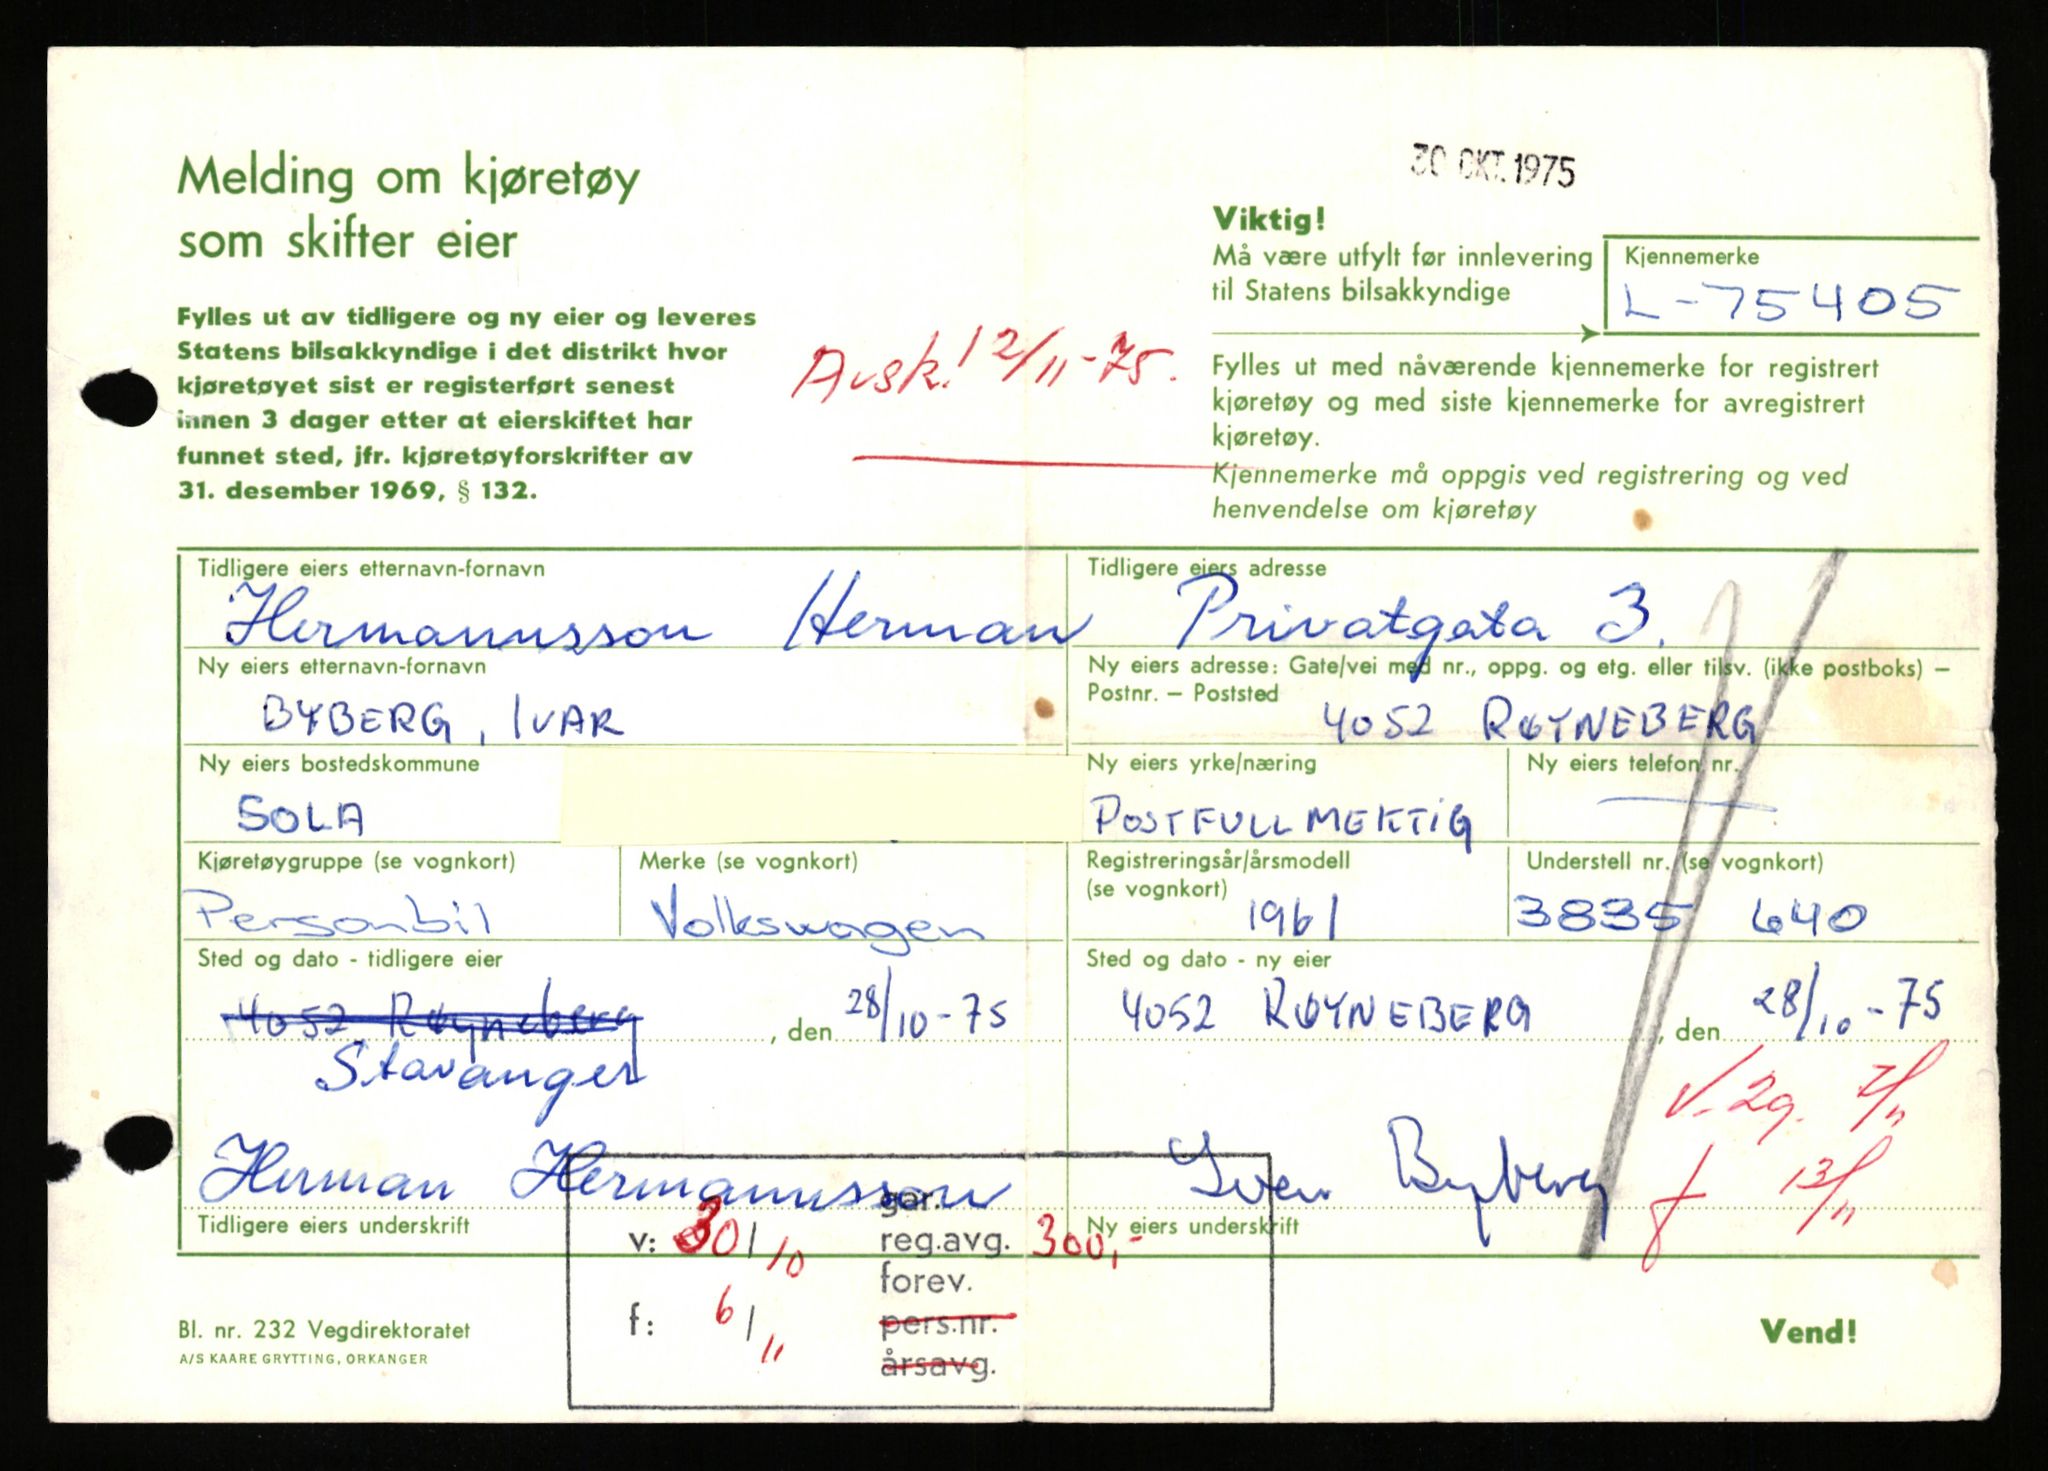 30 OKT. 1975
Melding om kjøretøy
som skifter eier
Fylles ut av tidligere og ny eier og leveres
Statens bilsakkyndige i det distrikt hvor
kjøretøyet sist er registerført senest
innen 3 dager etter at eierskiftet har
funnet sted, jfr. kjøretøyforskrifter av
31. desember 1969, § 132.
Avsk. 12/11-75.
Viktig!
Må være utfylt før innlevering
til Statens bilsakkyndige
Kjennemerke
L-75405
Fylles ut med nåværende kjennemerke for registrert
kjøretøy og med siste kjennemerke for avregistrert
kjøretøy.
Kjennemerke må oppgis ved registrering og ved
henvendelse om kjøretøy
Tidligere eiers etternavn-fornavn
Hermannsson Herman
Tidligere eiers adresse
Privatgata 3.
Ny eiers etternavn-fornavn
BYBERG, IVAR
Ny eiers adresse: Gate/vei med nr., oppg. og etg. eller tilsv. (ikke postboks) –
Postnr. – Poststed
4052 RØYNEBERG
Ny eiers bostedskommune
SOLA
Ny eiers yrke/næring
POSTFULLMEKTIG
Ny eiers telefon nr.
Kjøretøygruppe (se vognkort)
Personbil
Merke (se vognkort)
Volkswagen
Registreringsår/årsmodell
(se vognkort)
1961
Understell nr. (se vognkort)
3835 640
Sted og dato - tidligere eier
4052 Røyneberg, den 28/10-75
Stavanger
Sted og dato - ny eier
4052 RØYNEBERG, den 28/10-75
V. 2g. 7/11
f 13/11
Herman Hermannsson
Tidligere eiers underskrift
Ivar Byberg
Ny eiers underskrift
gar.
v: 30/10 reg.avg. 300,-
forev.
f: 6/11 pers.nr.
årsavg.
Bl. nr. 232 Vegdirektoratet
A/S KAARE GRYTTING, ORKANGER
Vend!